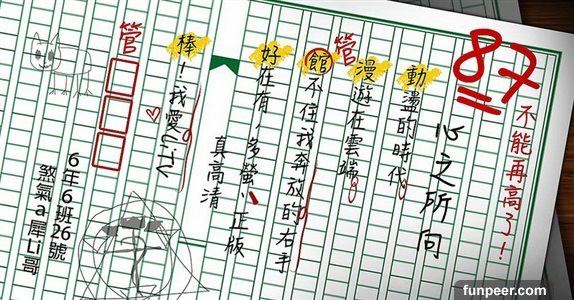 87
不能再高了！
心之所向
動盪的時代
漫遊在雲端
管
館不住我奔放的右手
好在有 多螢小正版
真高清
棒！我愛LiTV
管
6年6班26號
煞氣a犀Li哥
funpeer.com